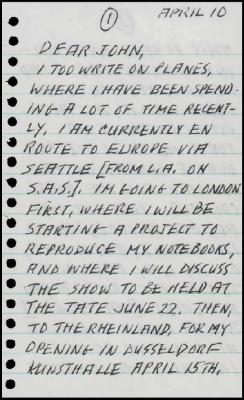 ① APRIL 10
DEAR JOHN,
I TOO WRITE ON PLANES,
WHERE I HAVE BEEN SPEND-
ING A LOT OF TIME RECENT-
LY. I AM CURRENTLY EN
ROUTE TO EUROPE VIA
SEATTLE [FROM L.A. ON
S.A.S.]. IM GOING TO LONDON
FIRST, WHERE I WILL BE
STARTING A PROJECT TO
REPRODUCE MY NOTEBOOKS,
AND WHERE I WILL DISCUSS
THE SHOW TO BE HELD AT
THE TATE JUNE 22. THEN,
TO THE RHEINLAND, FOR MY
OPENING IN DUSSELDORF
KUNSTHALLE APRIL 15TH,